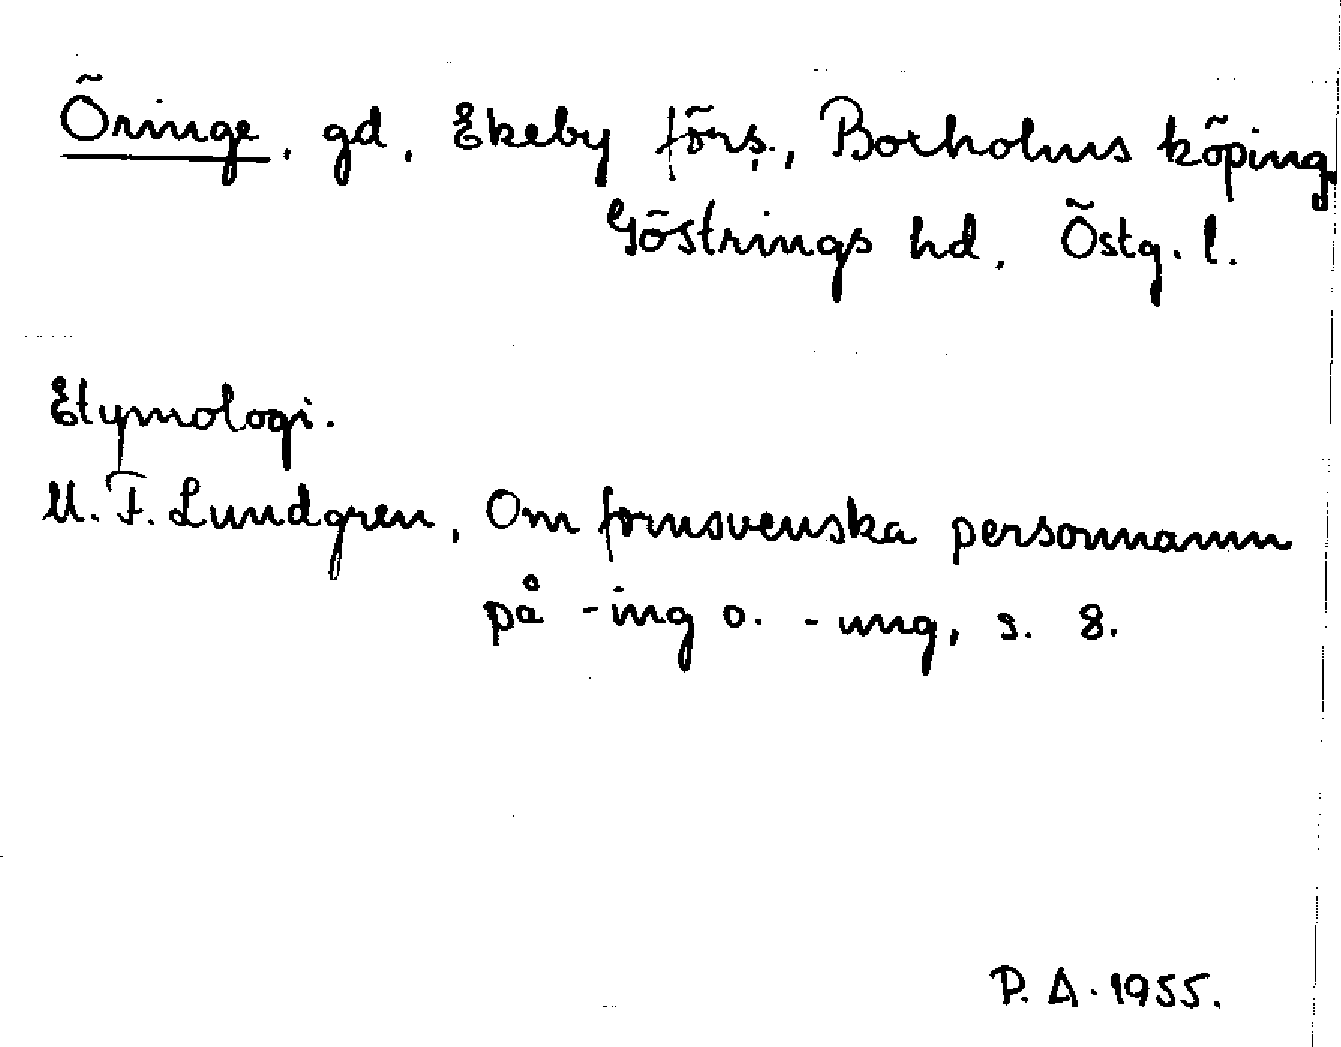 Öringe, gd, Ekeby förs., Boxholms köping,
Göstrings hd, Östg. l.
Etymologi.
M. F. Lundgren, Om fornsvenska personnamn
på -ing o. -ung, s. 8.
P. A. 1955.